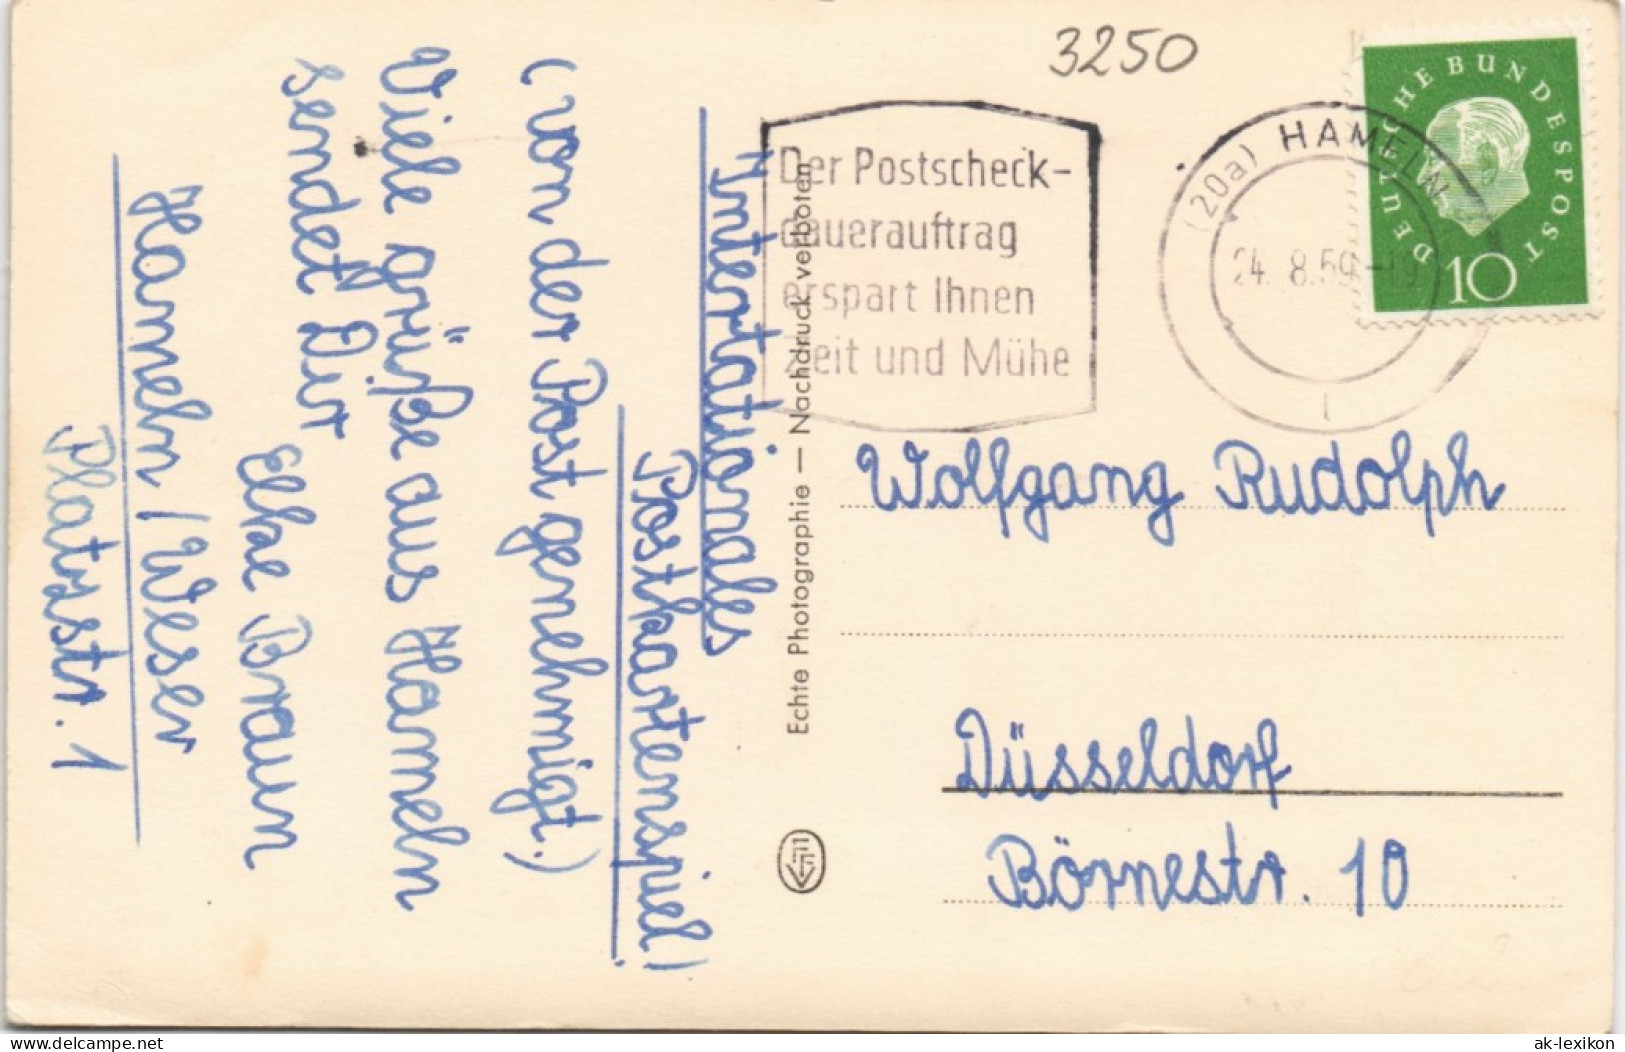 3250
DEUTSCHE BUNDESPOST
10
(20a) HAMELN
24. 8.59-19
1
Der Postscheck-
dauerauftrag
erspart Ihnen
Zeit und Mühe
Internationales
Postkartenspiel!
(von der Post genehmigt.)
Viele grüße aus Hameln
sendet Dir
Elke Braun
Hameln / Weser
Platzstr. 1
Echte Photographie — Nachdruck verboten
Wolfgang Rudolph
Düsseldorf
Börnestr. 10
ansichtskarten-lexikon.de
ak-lexikon